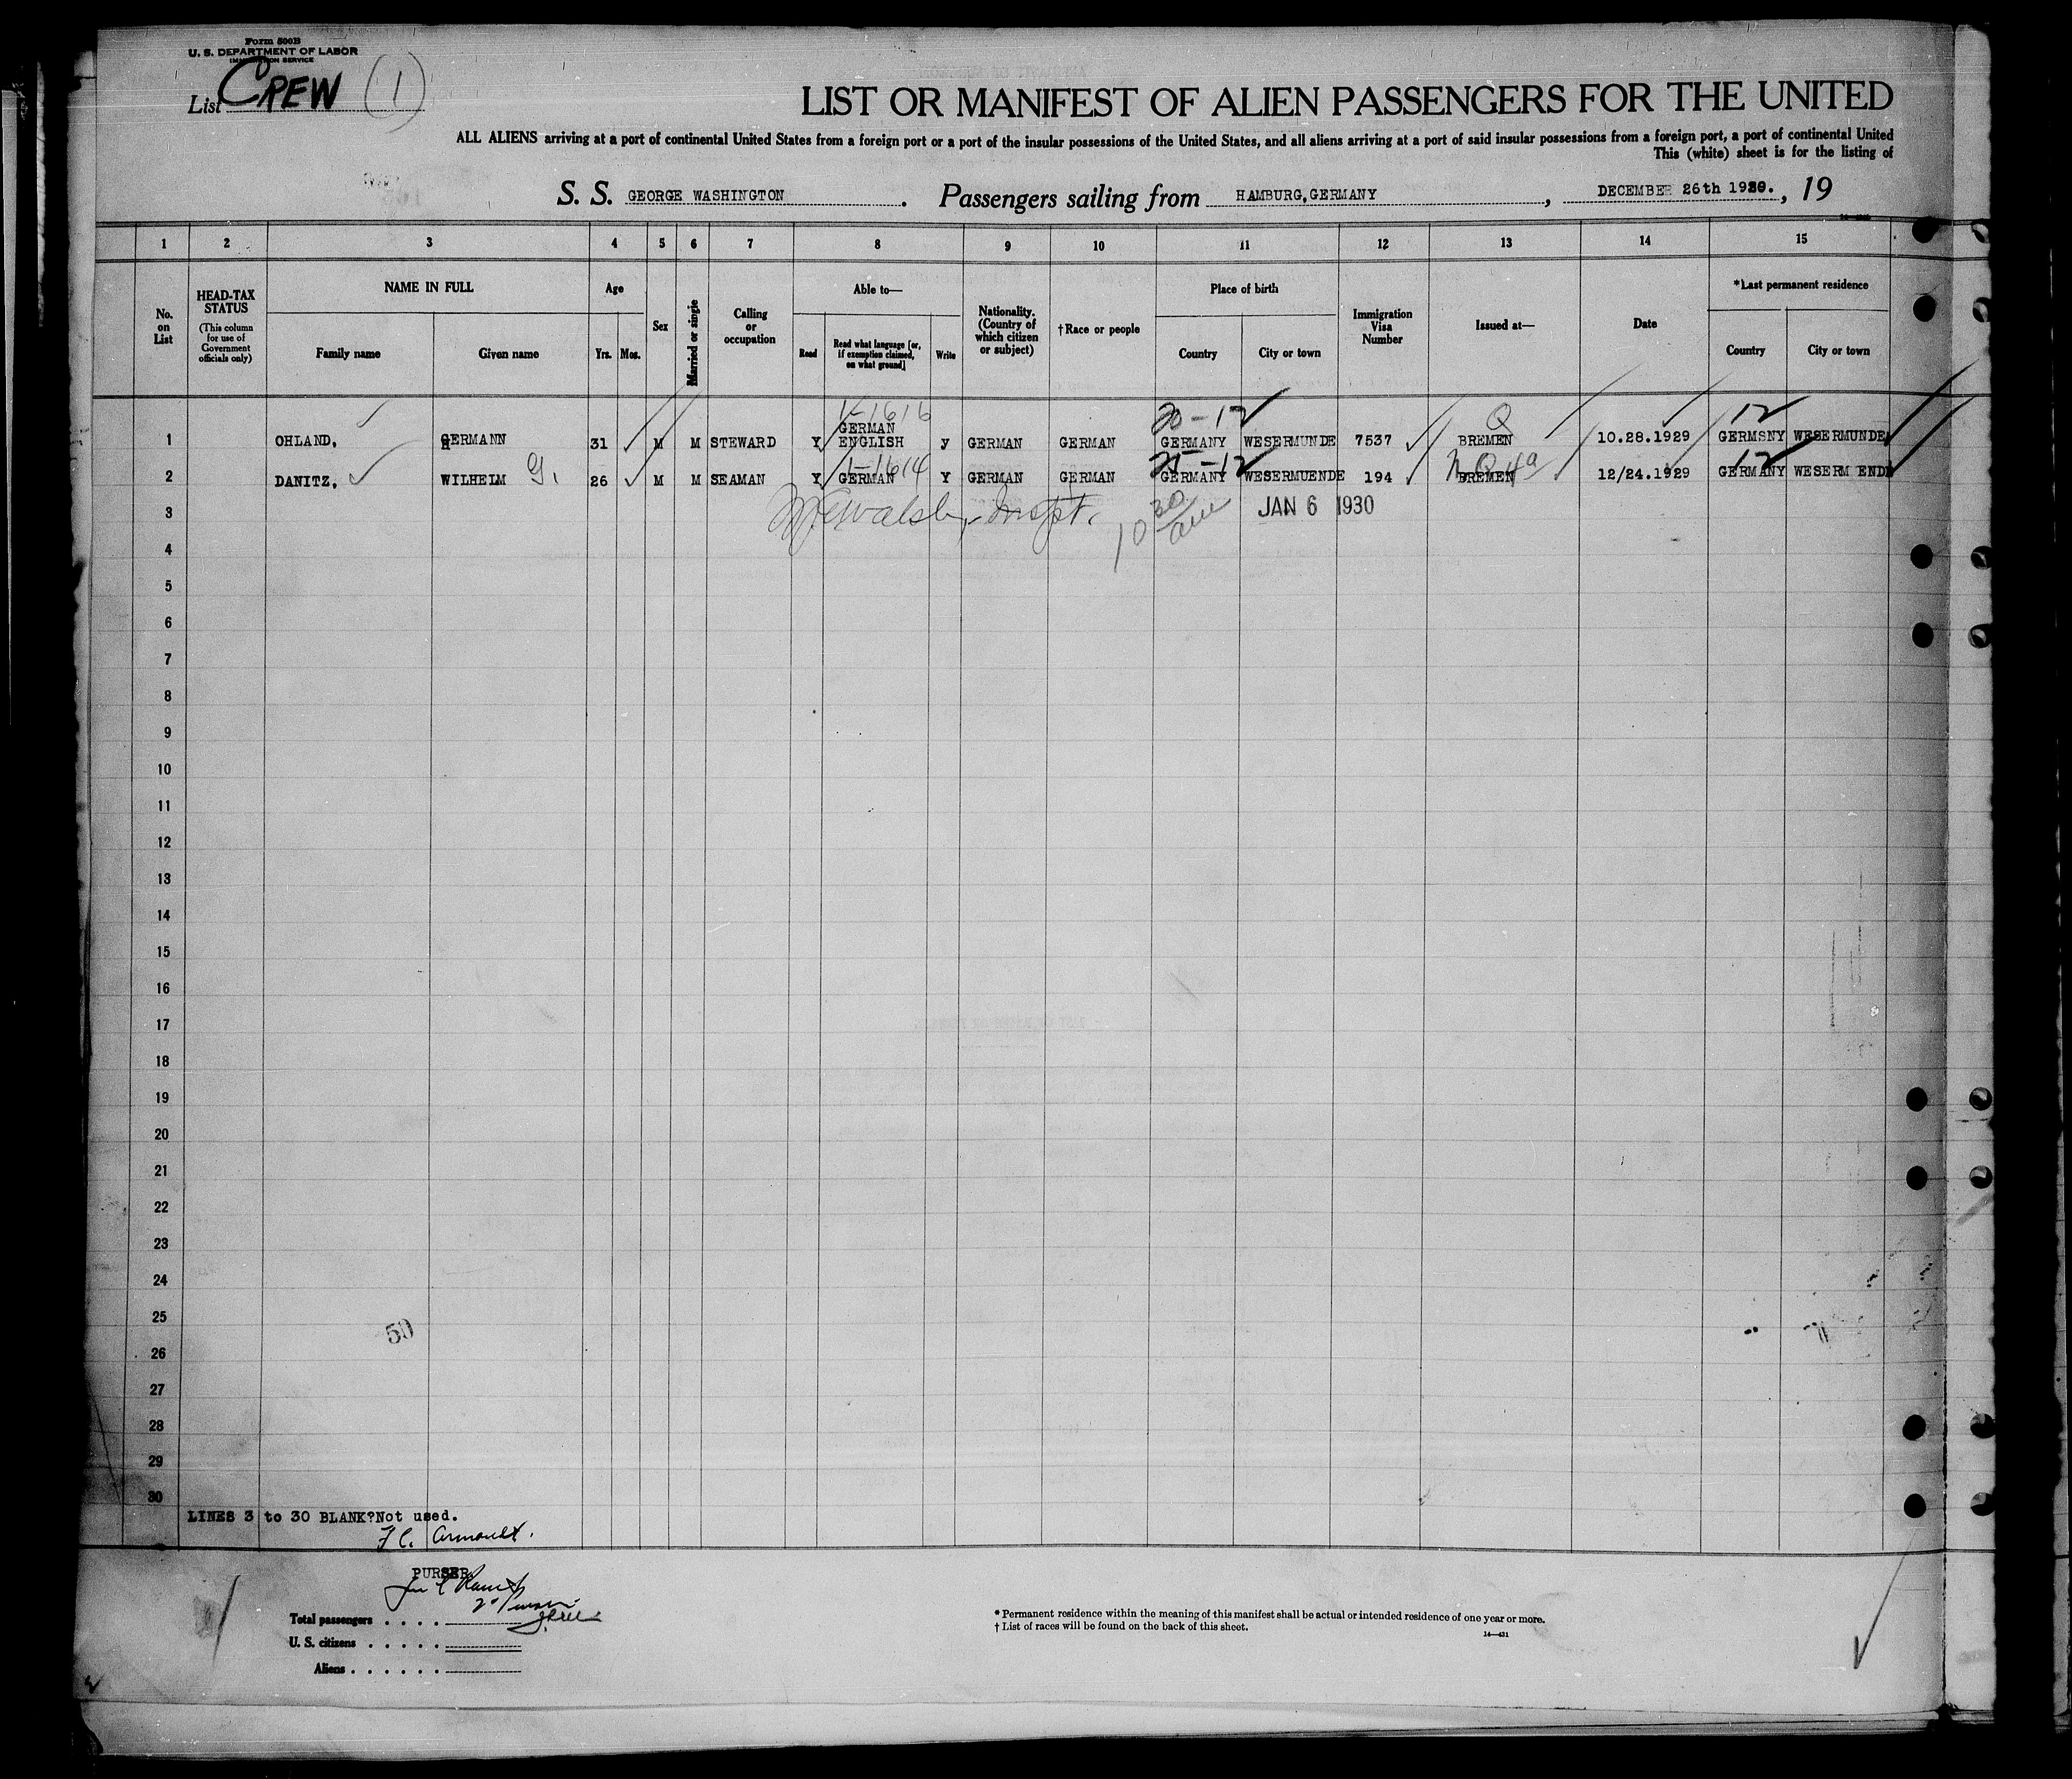 Form 500B
U. S. DEPARTMENT OF LABOR
IMMIGRATION SERVICE
List CREW (1)
LIST OR MANIFEST OF ALIEN PASSENGERS FOR THE UNITED
ALL ALIENS arriving at a port of continental United States from a foreign port or a port of the insular possessions of the United States, and all aliens arriving at a port of said insular possessions from a foreign port, a port of continental United
This (white) sheet is for the listing of
S. S. GEORGE WASHINGTON . Passengers sailing from HAMBURG,GERMANY , DECEMBER 26th 1929. , 19
1 2 3 4 5 6 7 8 9 10 11 12 13 14 15
No. on List
HEAD-TAX STATUS
(This column for use of Government officials only)
NAME IN FULL
Family name Given name
Age
Yrs. Mos.
Sex
Married or single
Calling or occupation
Able to—
Read
Read what language [or, if exemption claimed, on what ground]
Write
Nationality. (Country of which citizen or subject)
†Race or people
Place of birth
Country City or town
Immigration Visa Number
Issued at—
Date
*Last permanent residence
Country City or town
1-1616 20-12 Q 12
GERMAN
1 OHLAND, GERMANN 31 M M STEWARD Y ENGLISH y GERMAN GERMAN GERMANY WESERMUNDE 7537 BREMEN 10.28.1929 GERMSNY WESERMUNDE
1-1614 25-12 12
2 DANITZ, WILHELM G. 26 M M SEAMAN Y GERMAN Y GERMAN GERMAN GERMANY WESERMUENDE 194 BREMEN 12/24.1929 GERMANY WESERM ENDE
3 Walsh, Inspt. 10 30 am JAN 6 1930
4
5
6
7
8
9
10
11
12
13
14
15
16
17
18
19
20
21
22
23
24
25
50
26
27
28
29
30
LINES 3 to 30 BLANK?Not used.
PURSER.
Total passengers . . . .
U. S. citizens . . . . .
Aliens . . . . . .
* Permanent residence within the meaning of this manifest shall be actual or intended residence of one year or more.
† List of races will be found on the back of this sheet.
14—431